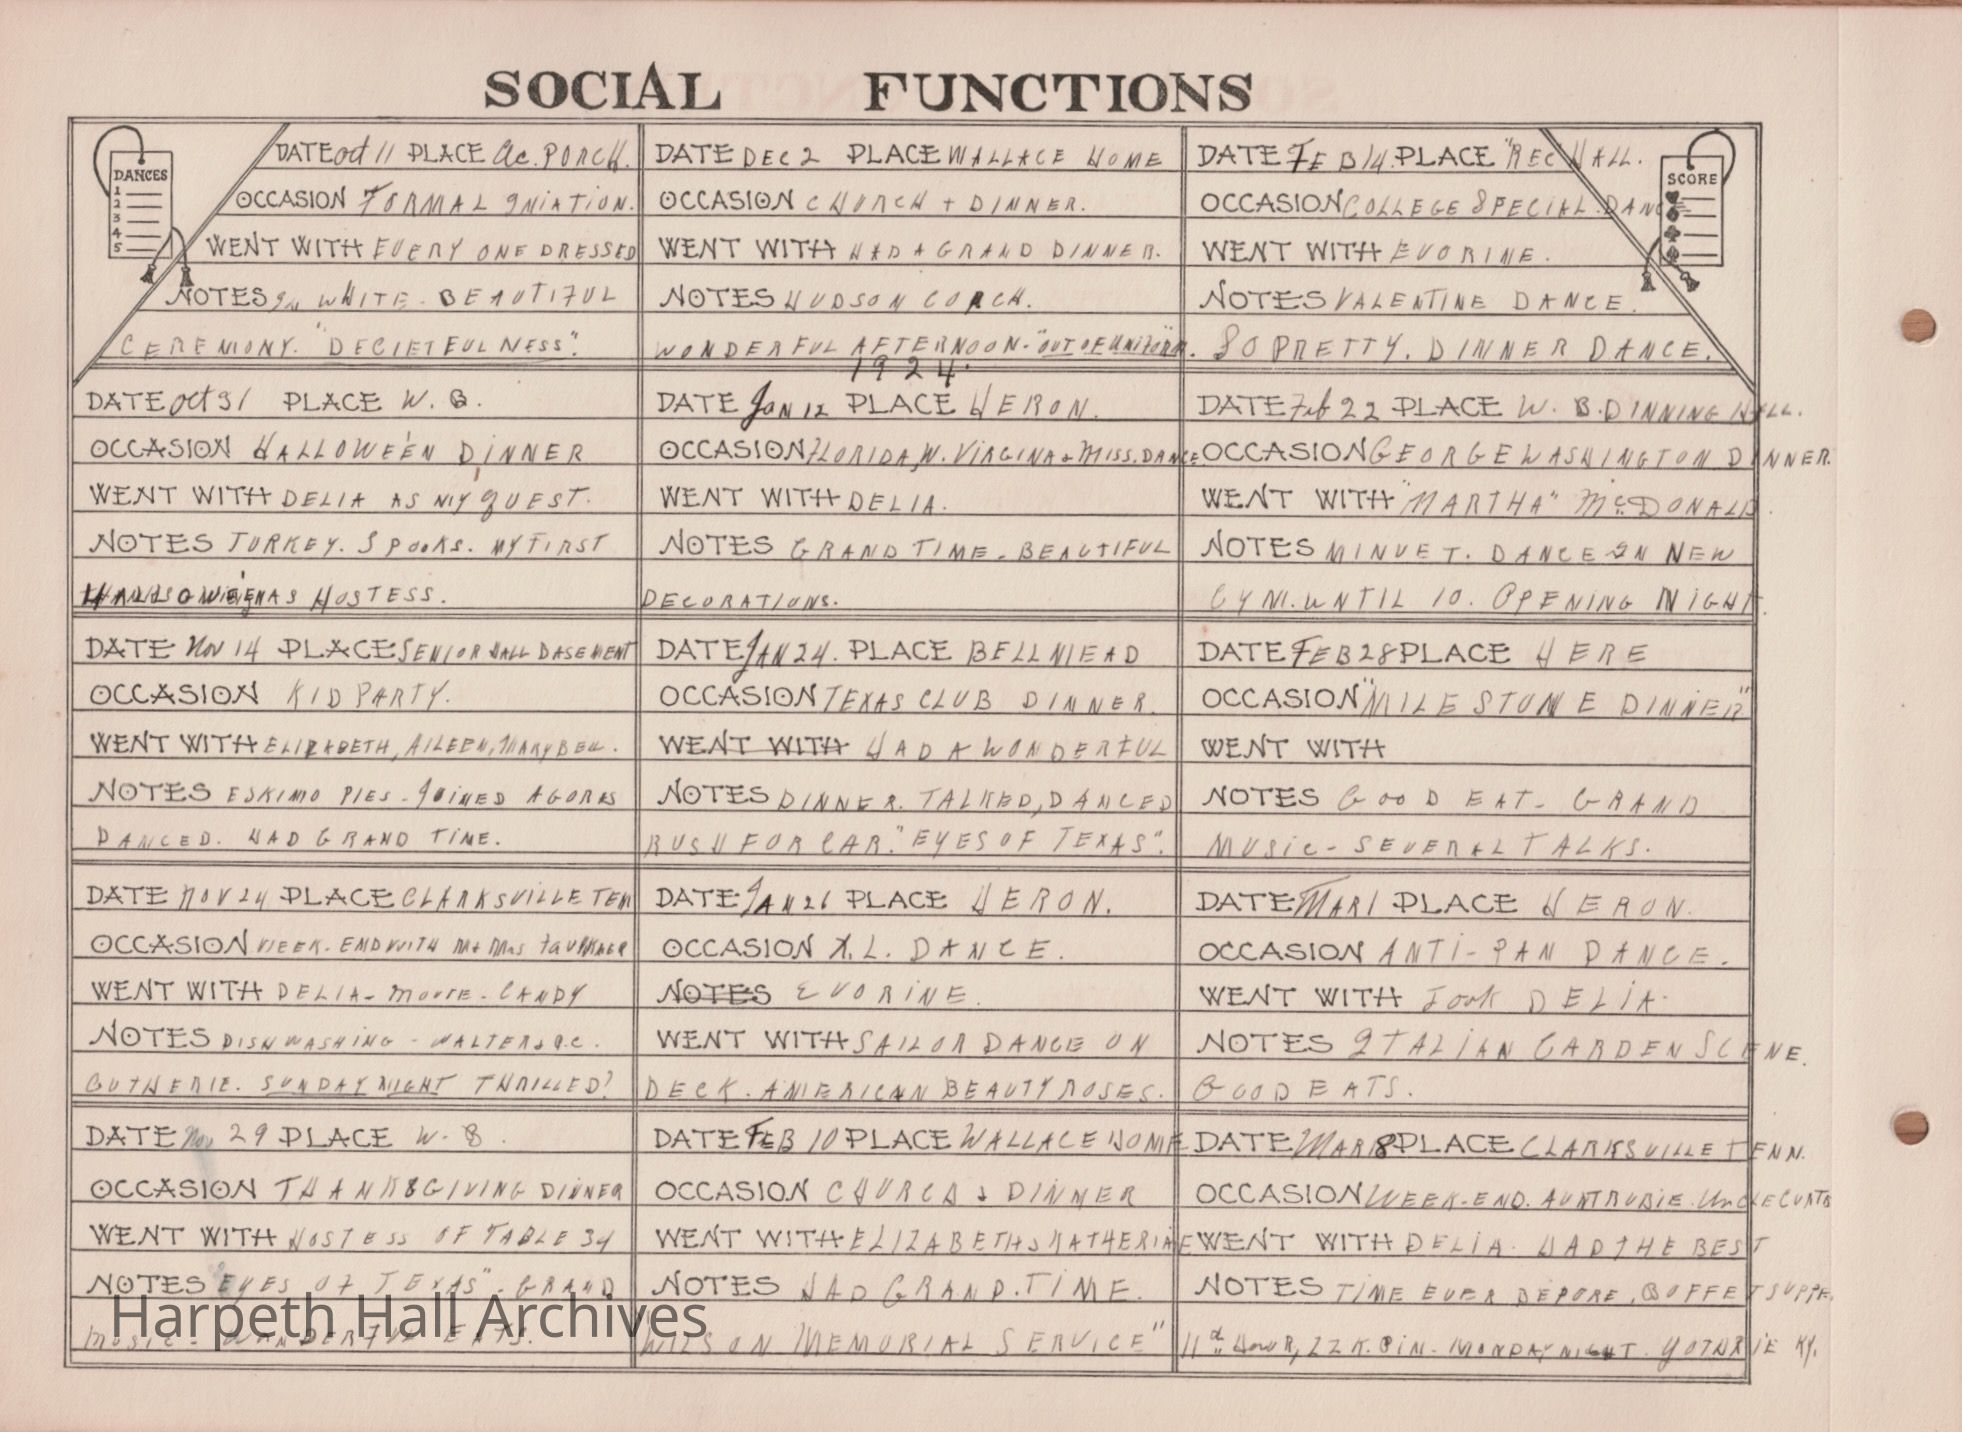 SOCIAL FUNCTIONS
DANCES
1
2
3
4
5
DATE Oct 11 PLACE Ac. PORCH.
OCCASION FORMAL INIATION.
WENT WITH EVERY ONE DRESSED
NOTES In WHITE - BEAUTIFUL
CEREMONY. "DECIETFULNESS".
DATE Oct 31 PLACE W. B.
OCCASION HALLOWE'EN DINNER
WENT WITH DELIA AS MY GUEST.
NOTES TURKEY. SPOOKS. MY FIRST
AS HOSTESS.
DATE Nov 14 PLACE SENIOR HALL BASEMENT
OCCASION KID PARTY.
WENT WITH ELIZABETH, AILEEN, MARYBELL.
NOTES ESKIMO PIES - JOINED AGORAS
DANCED. HAD GRAND TIME.
DATE NOV 24 PLACE CLARKSVILLE TEN
OCCASION WEEK-END WITH M+Mrs FAULKNER
WENT WITH DELIA - MOVIE - CANDY
NOTES DISHWASHING - WALTER & A.C.
GUTHERIE. SUNDAY NIGHT THRILLED?
DATE Nov 29 PLACE W-B.
OCCASION THANKSGIVING DINNER
WENT WITH HOSTESS OF TABLE 34
NOTES "EYES OF TEXAS" - GRAND
MUSIC - WANDERFUL EATS.
DATE DEC 2 PLACE WALLACE HOME
OCCASION CHURCH + DINNER.
WENT WITH HAD A GRAND DINNER.
NOTES HUDSON COACH.
WONDERFUL AFTERNOON - "OUT OF UNIFORM".
1924.
DATE JAN 12 PLACE HERON.
OCCASION FLORIDA, W. VIRGINA & MISS. DANCE
WENT WITH DELIA.
NOTES GRAND TIME - BEAUTIFUL
DECORATIONS.
DATE JAN 24. PLACE BELLMEAD
OCCASION TEXAS CLUB DINNER
WENT WITH HAD A WONDERFUL
NOTES DINNER. TALKED, DANCED
RUSH FOR CAR. "EYES OF TEXAS".
DATE JAN 26 PLACE HERON.
OCCASION X.L. DANCE.
NOTES EVORINE.
WENT WITH SAILOR DANCE ON
DECK. AMERICAN BEAUTY ROSES.
DATE FEB 10 PLACE WALLACE HOME
OCCASION CHURCH & DINNER
WENT WITH ELIZABETH & KATHERINE
NOTES HAD GRAND. TIME.
"WILSON MEMORIAL SERVICE"
SCORE
DATE FEB 14. PLACE "REC HALL.
OCCASION COLLEGE SPECIAL. DANCE
WENT WITH EVORINE.
NOTES VALENTINE DANCE.
SO PRETTY. DINNER DANCE.
DATE Feb 22 PLACE W. B. DINNING HALL.
OCCASION GEORGE WASHINGTON DINNER.
WENT WITH "MARTHA" McDONALD.
NOTES MINUET. DANCE IN NEW
GYM. UNTIL 10. OPENING NIGHT.
DATE FEB 28 PLACE HERE
OCCASION "MILE STONE DINNER"
WENT WITH
NOTES GOOD EAT - GRAND
MUSIC - SEVERAL TALKS.
DATE MAR 1 PLACE HERON.
OCCASION ANTI-PAN DANCE.
WENT WITH TOOK DELIA.
NOTES ITALIAN GARDEN SCENE.
GOOD EATS.
DATE MAR 8 PLACE CLARKSVILLE TENN.
OCCASION WEEK-END. AUNT RUBIE. UNCLE CURTIS
WENT WITH DELIA. HAD THE BEST
NOTES TIME EVER BEFORE. BUFFET SUPPE.
HOUR, PIN - MONDAY NIGHT. KY.
Harpeth Hall Archives